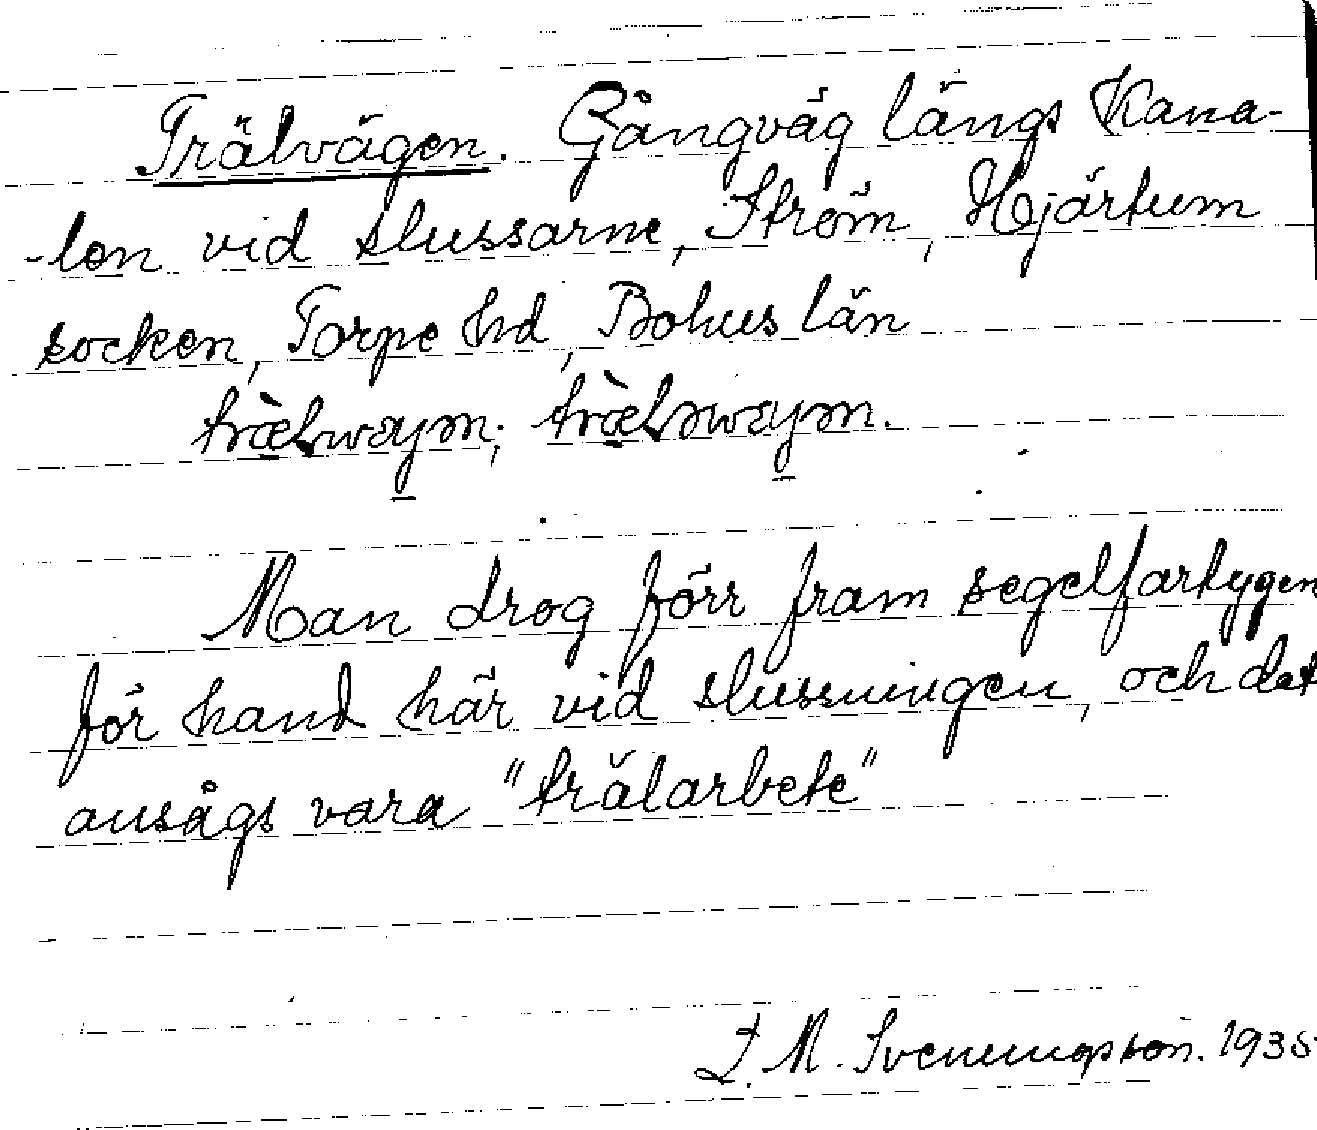 Trälvägen. Gångväg längs Kana-
-len vid slussarne, Ström, Hjärtum
socken, Torpe hd, Bohus län
Man drog förr fram segelfartygen
för hand här vid slussningen, och det
ansågs vara "trälarbete"
M. Svenungsson. 1935